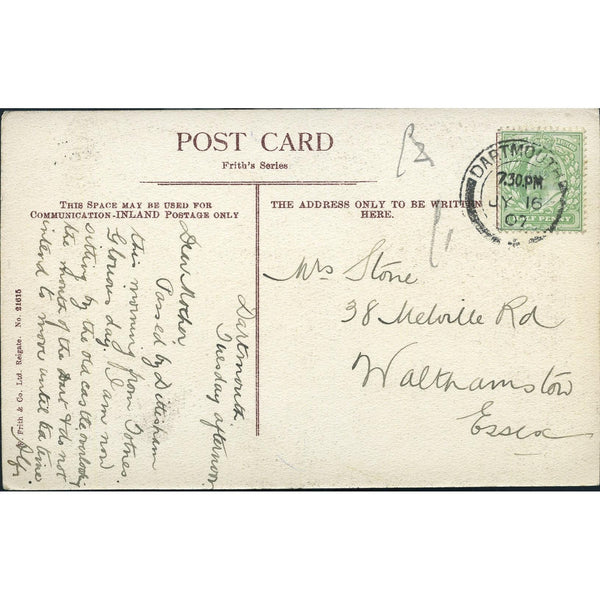 POST CARD
Frith's Series
THIS SPACE MAY BE USED FOR
COMMUNICATION-INLAND POSTAGE ONLY
THE ADDRESS ONLY TO BE WRITTEN
HERE.
DARTMOUTH
7.30PM
JY 16
07
HALF PENNY
Dartmouth
Tuesday afternoon
Dear Mother,
Passed by Dittisham
this morning from Totnes.
Glorious day. I am now
sitting by the old castle overlooking
the mouth of the Dart & do not
intend to move until tea time
Alf.
Mrs Stone
38 Melville Rd
Walthamstow
Essex
Frith & Co. Ltd. Reigate. No. 21615